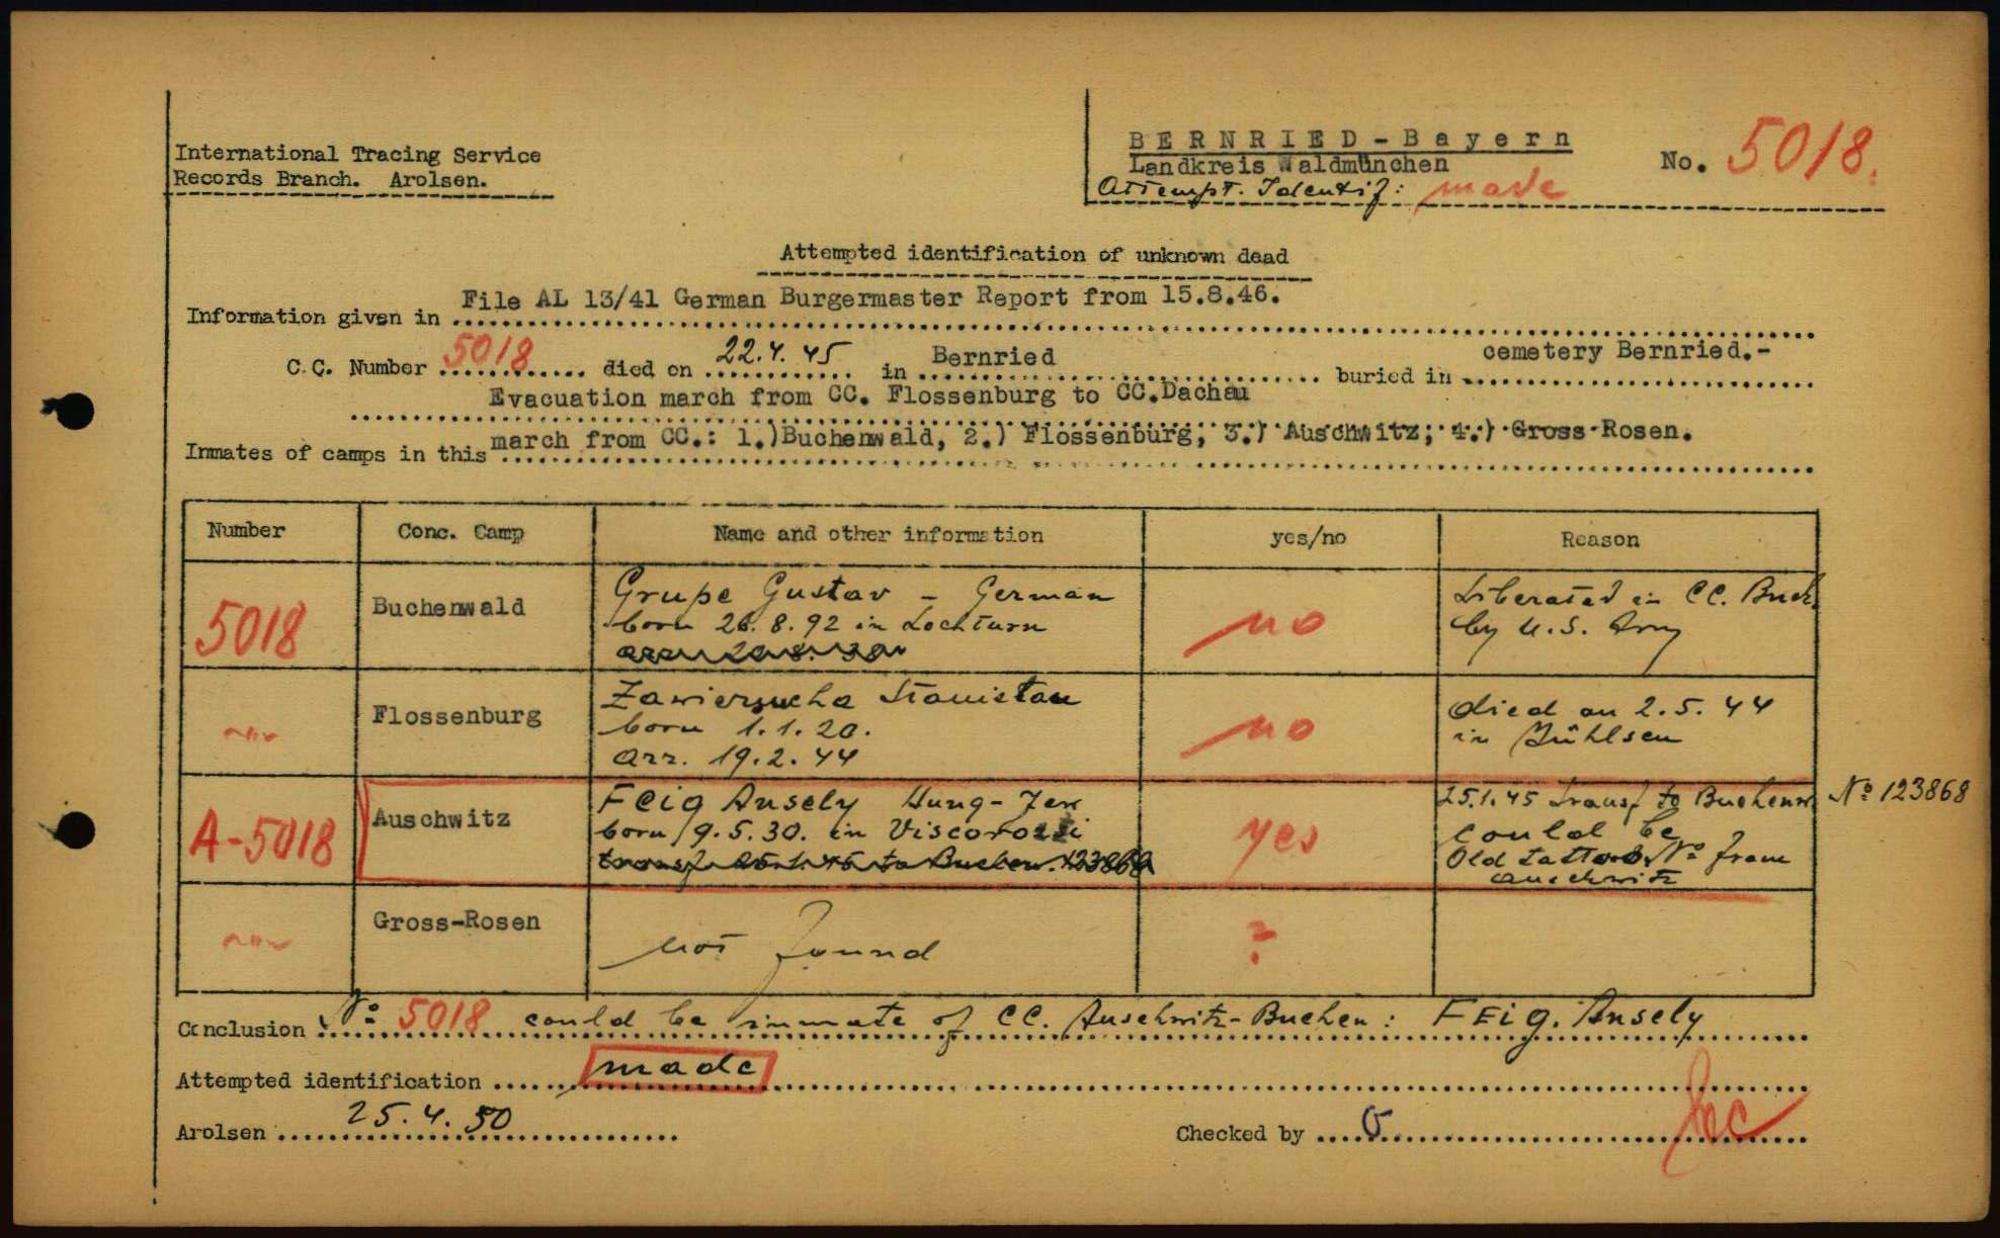 International Tracing Service
Records Branch. Arolsen.
BERNRIED-Bayern
Landkreis Waldmünchen
Attempt. Identif: made
No. 5018.
Attempted identification of unknown dead
Information given in File AL 13/41 German Burgermaster Report from 15.8.46.
C.C. Number 5018 died on 22.4.45 in Bernried buried in cemetery Bernried.-
Evacuation march from CC. Flossenburg to CC.Dachau
Inmates of camps in this march from CC.: 1.)Buchenwald, 2.) Flossenburg; 3.) Auschwitz; 4.) Gross-Rosen.
Number Conc. Camp Name and other information yes/no Reason
5018 Buchenwald no
Grupe Gustav - German
born 26.8.92 in Lochturn
Liberated in CC. Buch.
by U.S. Army
Flossenburg no
Zawierucha Stanislau
born 1.1.20.
arr. 19.2.44
died on 2.5.44
in Mühlsen
A-5018 Auschwitz yes
Feig Ansely Hung-Jew
born 9.5.30. in
transf. 25.1.45 to Buchen. 123868
25.1.45 transf to Buchenw № 123868
could be
Old Tattoo № from
Auschwitz
Gross-Rosen not found ?
Conclusion № 5018 could be inmate of CC. Auschwitz-Buchen: FEig. Ansely
Attempted identification made
Arolsen 25.4.50
Checked by